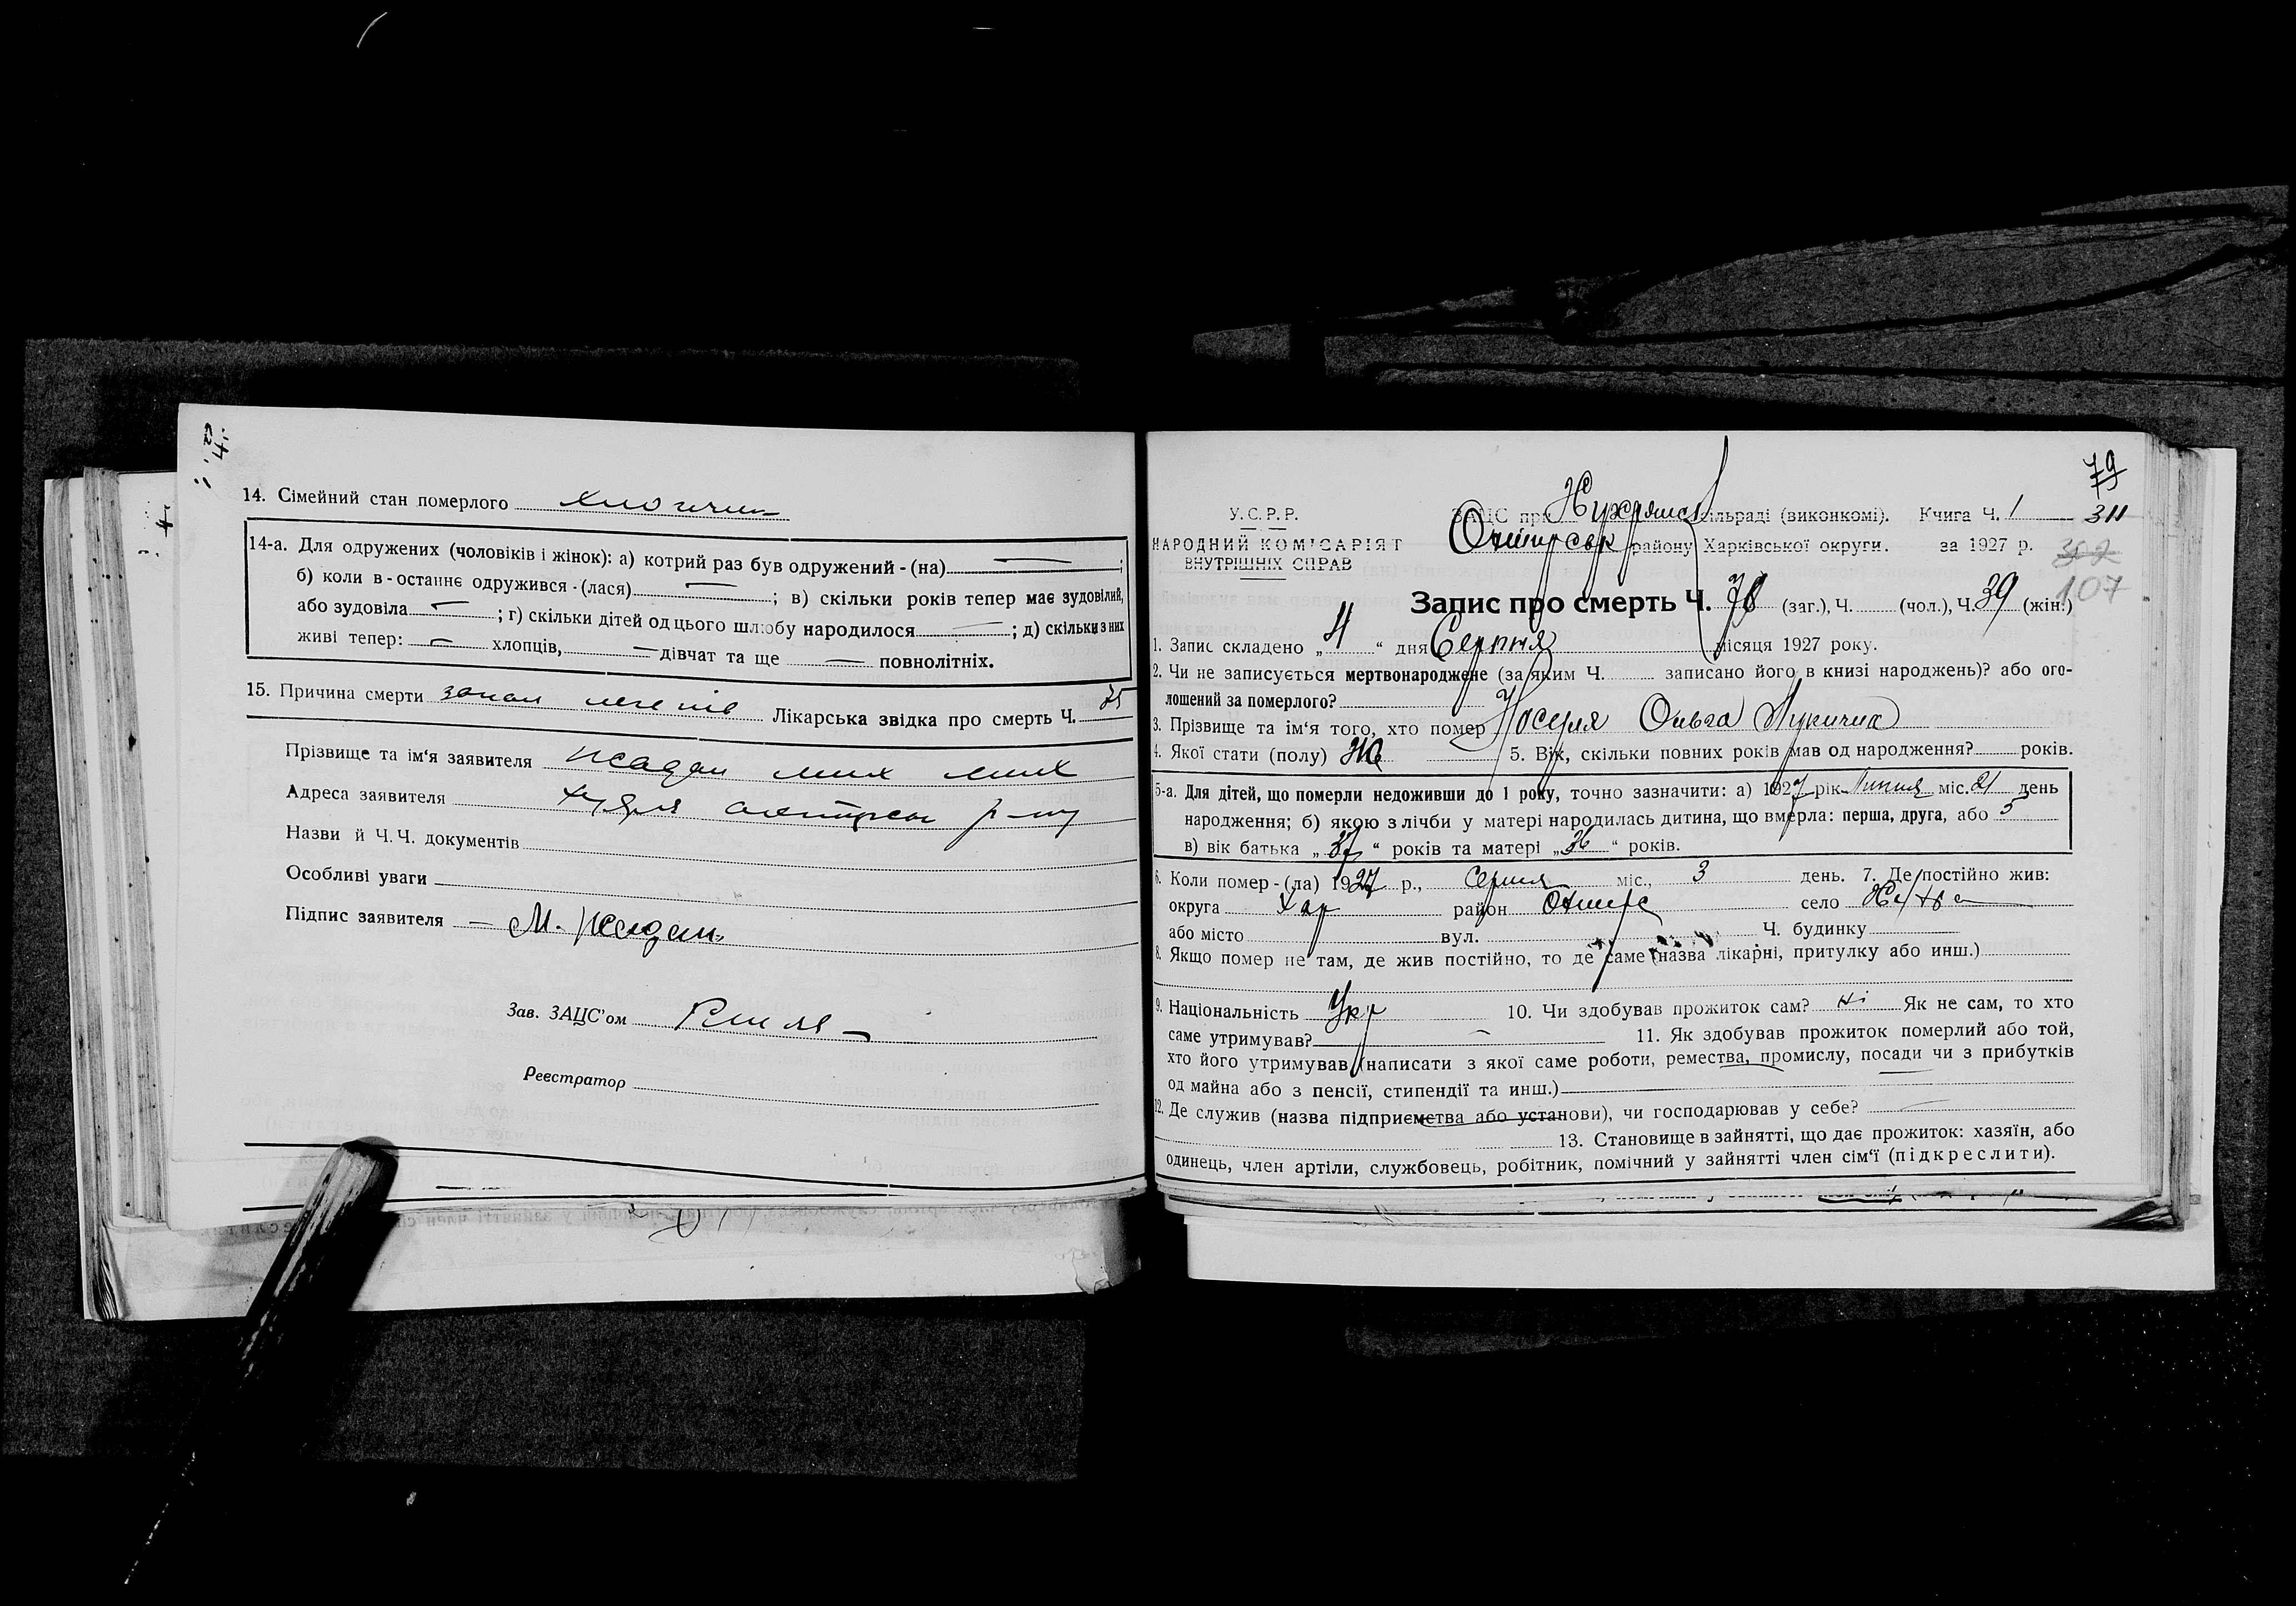 14. Сімейний стан померлого
14-а. Для одружених (чоловіків і жінок): а) котрий раз був одружений - (на) — ;
б) коли в-останнє одружився - (лася) — ; в) скільки років тепер має зудовілий,
або зудовіла — ; г) скільки дітей од цього шлюбу народилося — ; д) скільки з них
живі тепер: — хлопців, — дівчат та ще — повнолітніх.
15. Причина смерти запал легенів Лікарська звідка про смерть Ч. 75
Прізвище та ім'я заявителя Жадан мих мих
Адреса заявителя р-ну
Назви й Ч. Ч. документів
Особливі уваги
Підпис заявителя — М. Жадан
Зав. ЗАЦС'ом
Реєстратор
79
У. С. Р. Р.
ЗАЦС при сільраді (виконкомі). Книга Ч. 1
311
НАРОДНИЙ КОМІСАРІЯТ
району Харківської округи. за 1927 р.
302
ВНУТРІШНІХ СПРАВ
107
Запис про смерть Ч. 78 (заг.), Ч. (чол.), Ч. 39 (жін.)
1. Запис складено „ 4 “ дня Серпня місяця 1927 року.
2. Чи не записується мертвонароджене (за яким Ч. записано його в книзі народжень)? або ого-
лошений за померлого?
3. Прізвище та ім'я того, хто помер Ольга
4. Якої стати (полу) Жі 5. Вік, скільки повних років мав од народження? років.
5-а. Для дітей, що померли недоживши до 1 року, точно зазначити: а) 1927 рік Липня міс. 21 день
народження; б) якою з лічби у матері народилась дитина, що вмерла: перша, друга, або 5
в) вік батька „ 37 “ років та матері „ 36 “ років.
6. Коли помер - (ла) 1927 р., Серпня міс., 3 день. 7. Де постійно жив:
округа Хар район Охтирс село
або місто вул. Ч. будинку
8. Якщо помер не там, де жив постійно, то де саме (назва лікарні, притулку або инш.)
9. Національність Укр 10. Чи здобував прожиток сам? ні Як не сам, то хто
саме утримував? — 11. Як здобував прожиток померлий або той,
хто його утримував (написати з якої саме роботи, ремества, промислу, посади чи з прибутків
од майна або з пенсії, стипендії та инш.)
12. Де служив (назва підприємства або установи), чи господарював у себе? —
13. Становище в зайнятті, що дає прожиток: хазяїн, або
одинець, член артіли, службовець, робітник, помічний у зайнятті член сім'ї (підкреслити).